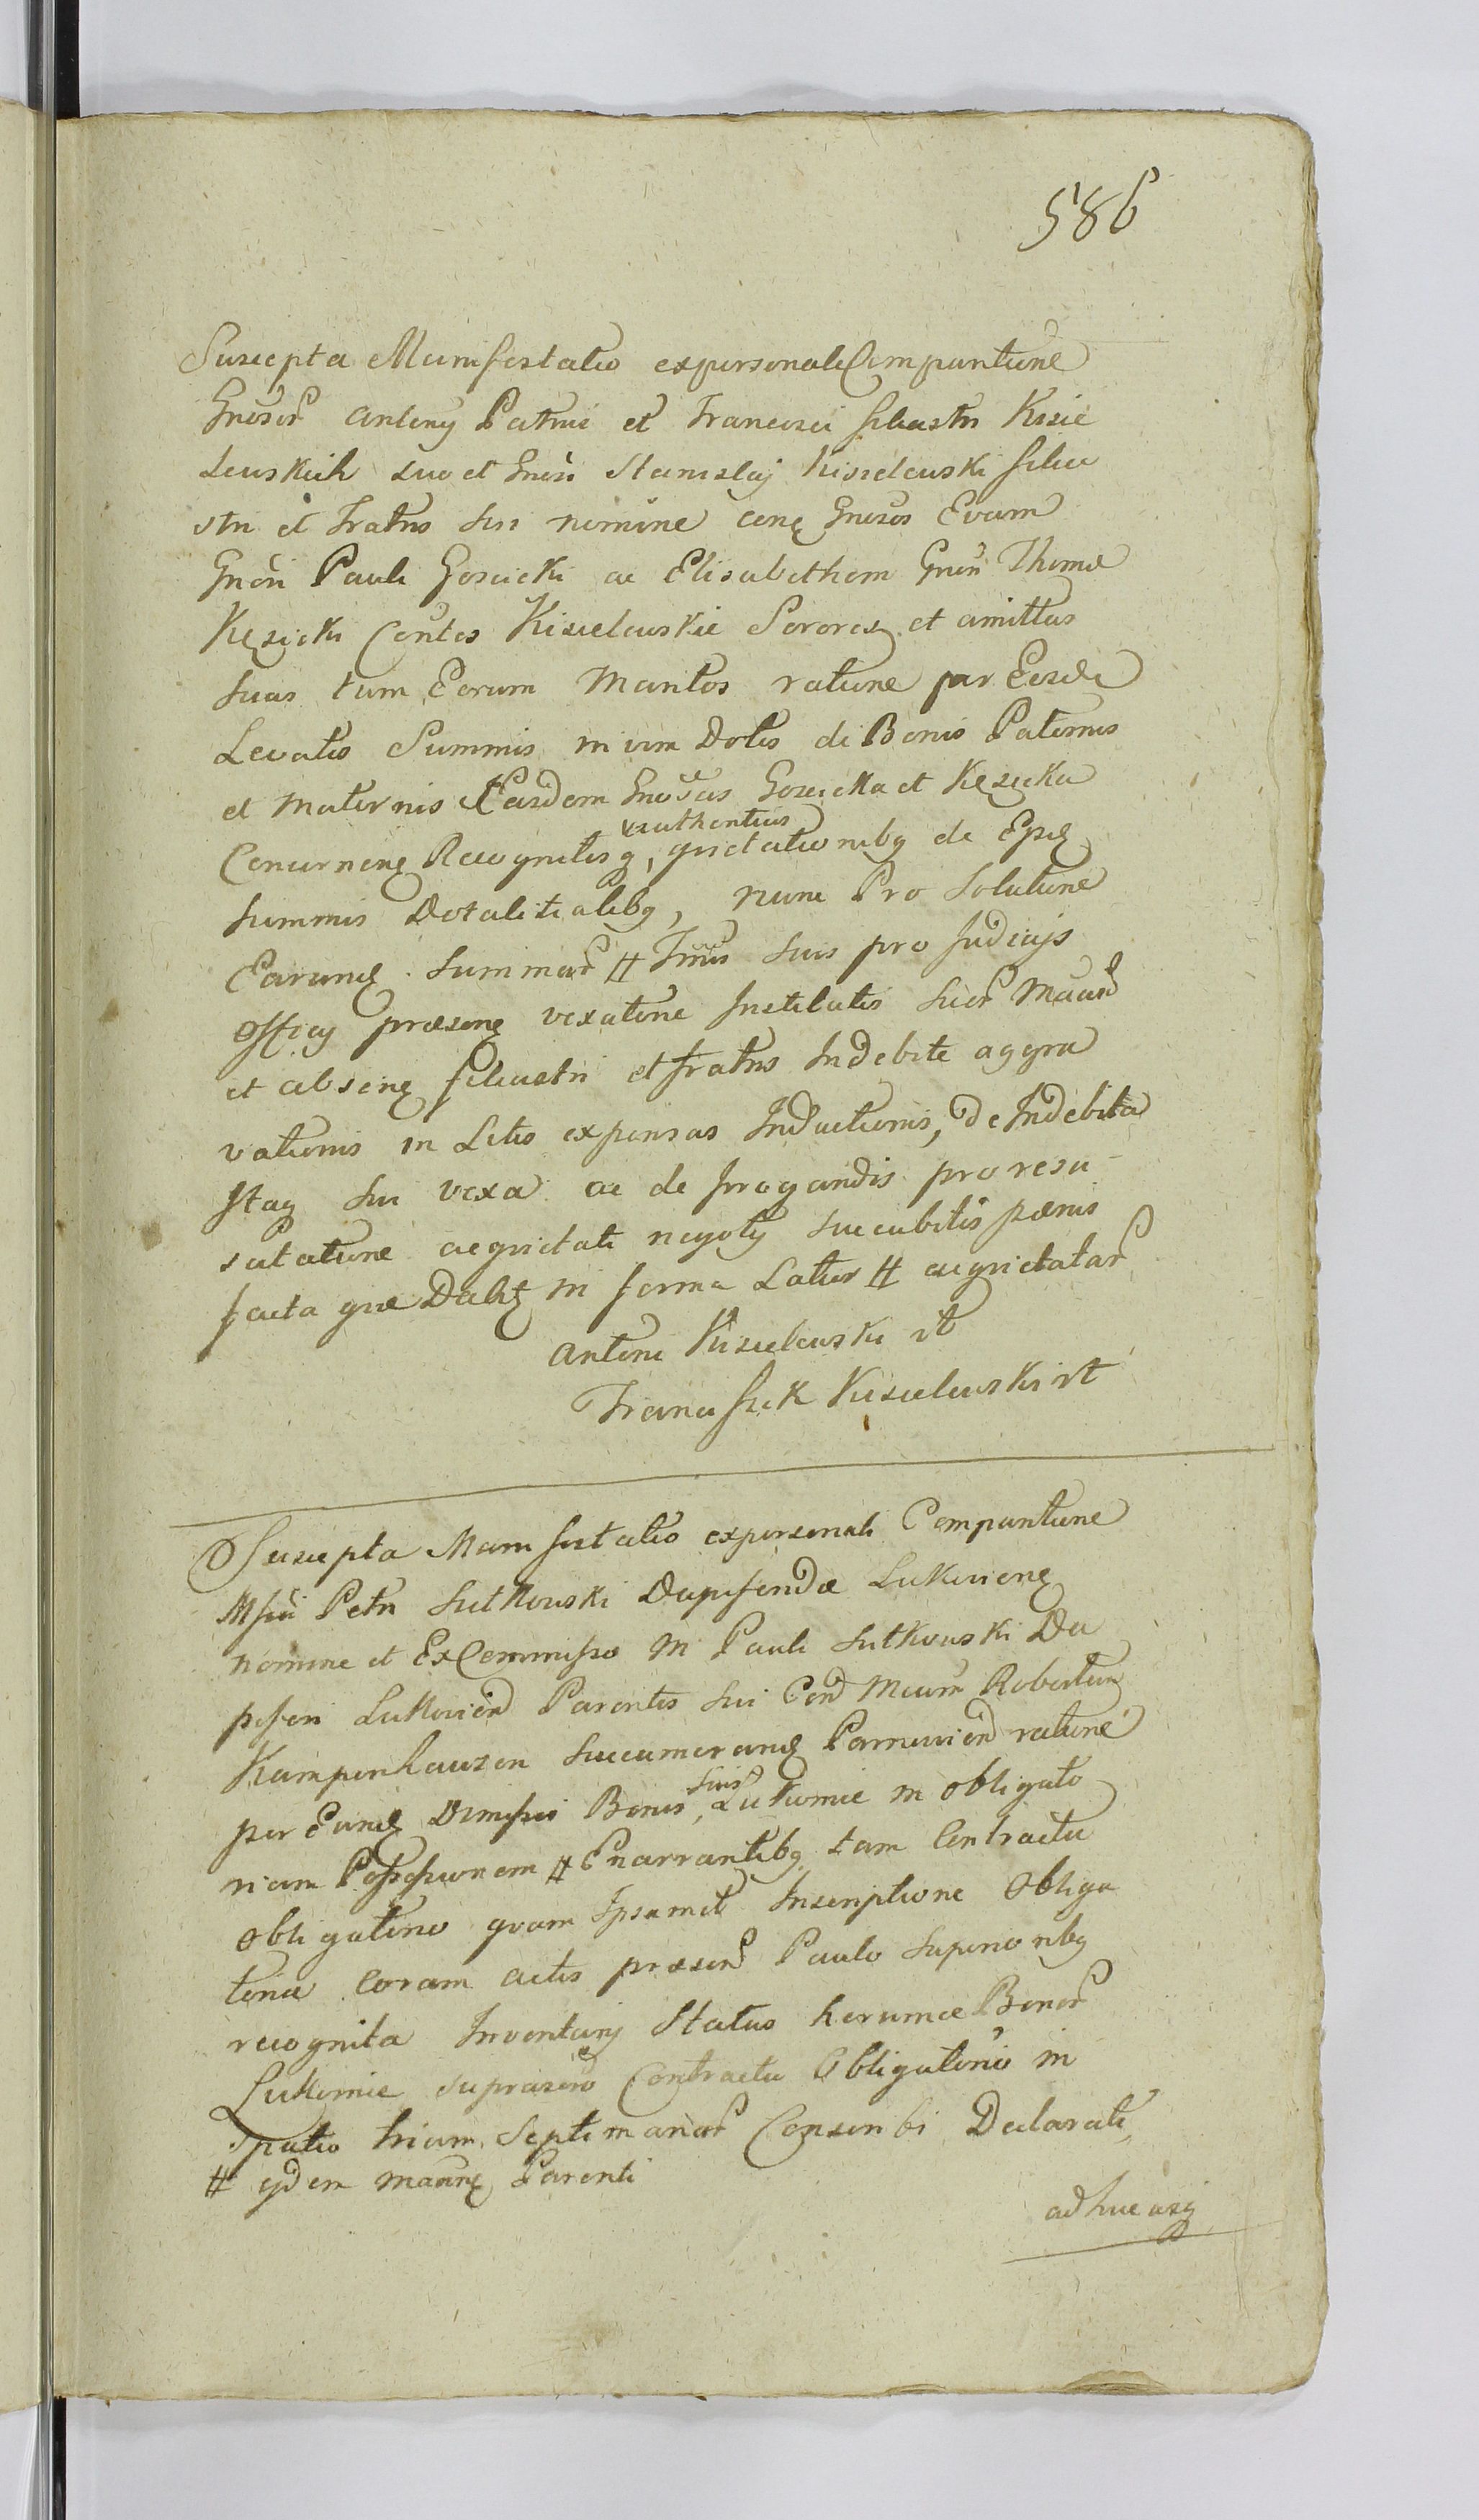 586
Suscepta Manifestatio ex personali Comparitione
Gnosor Antonij Patrui et Francisci filiastri Kisie
lewskich suo et Gnosi Stanislaj Kisielewski filia
stri et Fratris sui nomine conq Gnosos Evam
Gnosi Pauli Gosicki ac Elisabetham Gnosi Thomæ
Kęsicki Contes Kisielewskie Sorores et amittas
suas tum Earum Maritos ratione per Easde
Levatis Summis in vim Dotis de Bonis Paternis
et Maternis Easdem Gnosas Gosicka et Kęsicka
authenticis
Concernenę Recognitisq, qvietationibq de Ejsdę
summis Dotalitialibq, nunc Pro Solutione
Earundę Summar # Tmis suis pro Judicijs
Officij præsenę vexatione Institutis suor Maand
et absenę filiastri et fratris Indebite aggra
vationis in Litis expensas Inductionis, de Indebita
Itaq sui vexa ac de Irrogandis pro resu
scitatione aeqvietati negotij succubitis pænis
facta qvæ Dabit in forma Latior # aeqvietatar
Antoni Kisielewski rt
Franciszek Kisielewski rt
Suscepta Manifestatio ex personali Comparitione
Msci Petri Sutkowski Dapiferidæ Lukovienę
nomine et Ex Commisso M Pauli Sutkowski Da
piferi Lukovien Parentis sui Con Mcum Robertum
Kampenhauzen Succamerarię Parnavien ratione
suis
per Eundę Dimissis Bonis, Lukomie in obligato
riam Possessionem # Enarrantibq tam Contractu
obligatorio qvam Ipsamet Inscriptione Obliga
toria coram actis præsen Paulo superioribq
recognita Inventarij Status horumce Bonor
Lukomie suprascro Contractu Obligatorio in
spatio trium Septimanar Conscribi Declarati
# ejdem Maanę Parenti
adhucusq